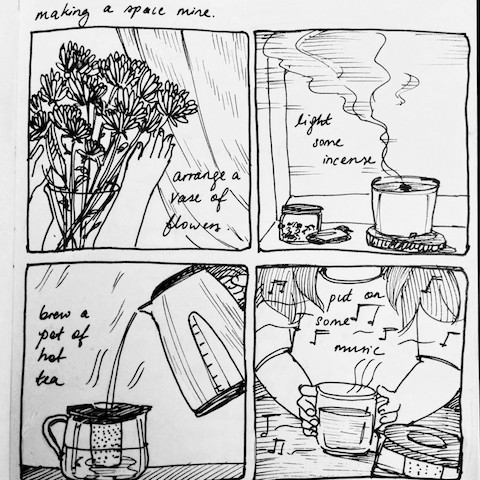 making a space mine.
arrange a
vase of
flowers.
light
some
incense
brew a
pot of
hot
tea
put on
some
music